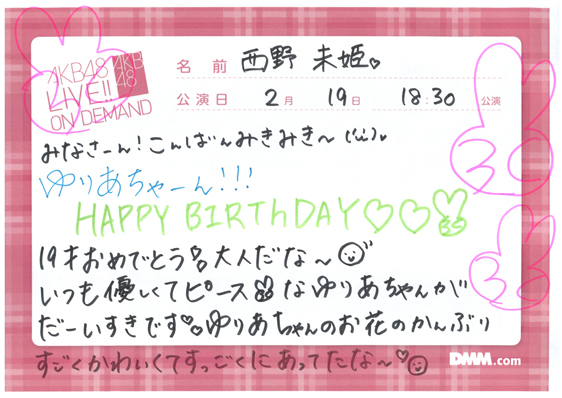 AKB48
LIVE!!
ON DEMAND
AKB
48
名前 西野 未姫
公演日 2月 19日 18:30 公演
みなさーん!こんばんみきみき〜
ゆりあちゃーん!!!
HAPPY BIRThDAY♡♡
19才おめでとう 大人だな〜
いつも優しくてピースなゆりあちゃんが
だーいすきです♡ゆりあちゃんのお花のかんぶり
すごくかわいくてすっごくにあってたな〜♡
DMM.com